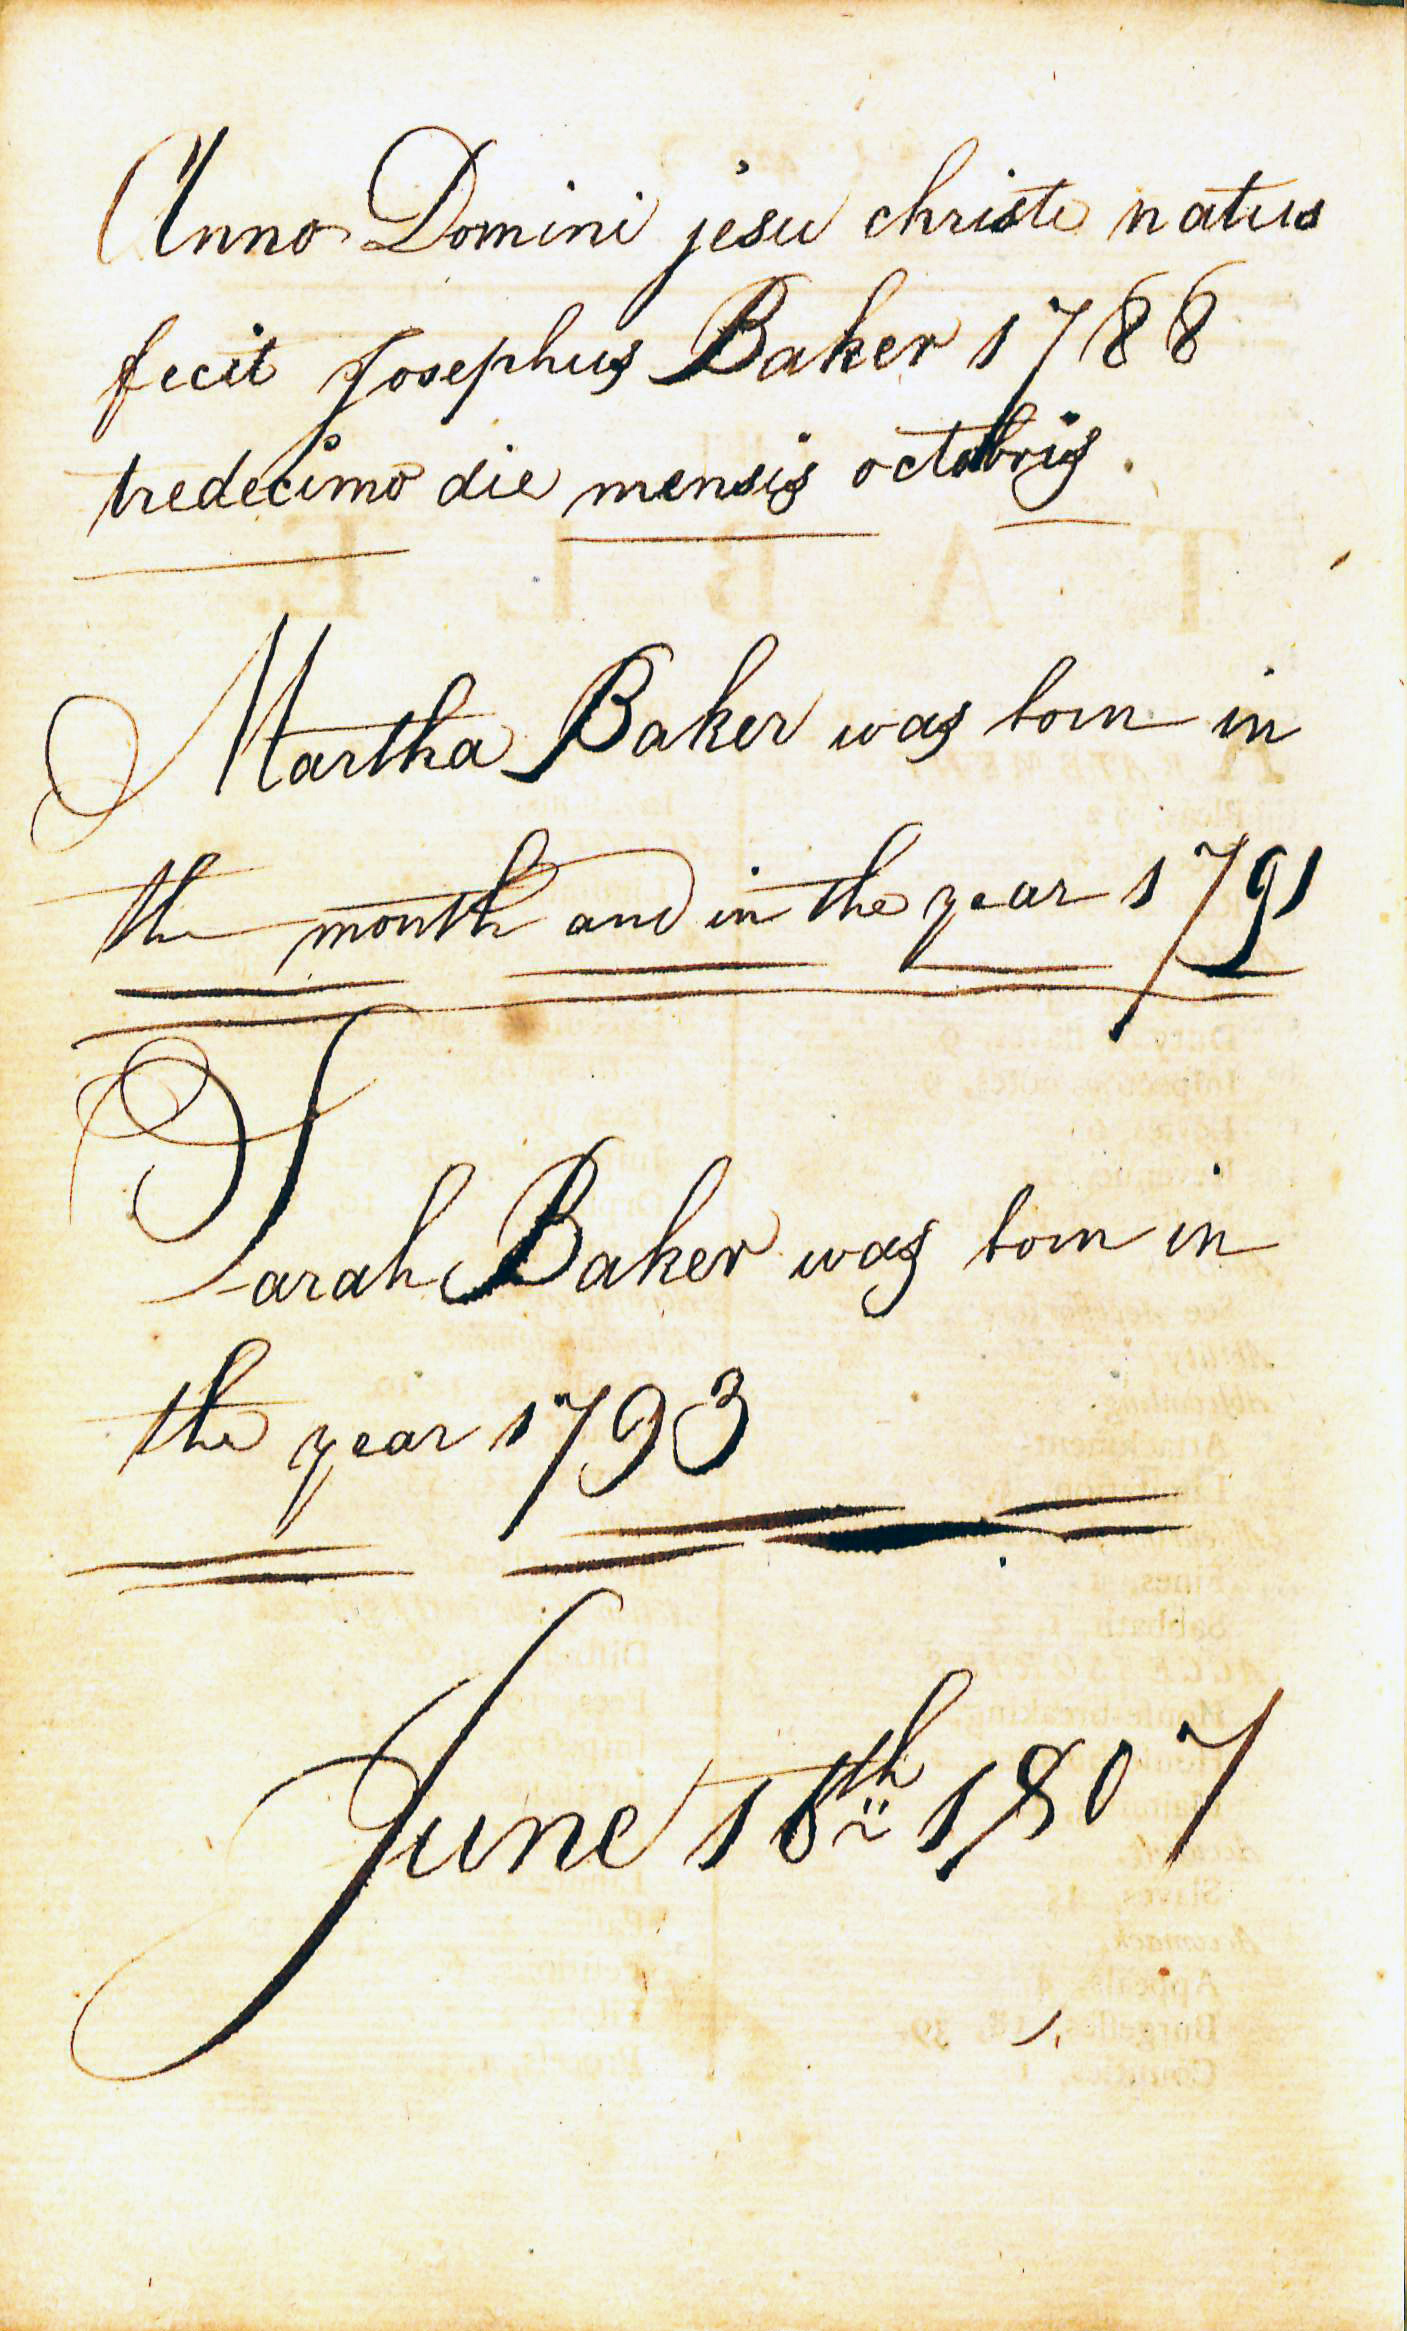 Anno Domini jesu christe natus
fecit Josephus Baker 1788
tredecimo die mensis octobris.
Martha Baker was born in
the month and in the year 1791
Sarah Baker was born in
the year 1793
June 18th 1807